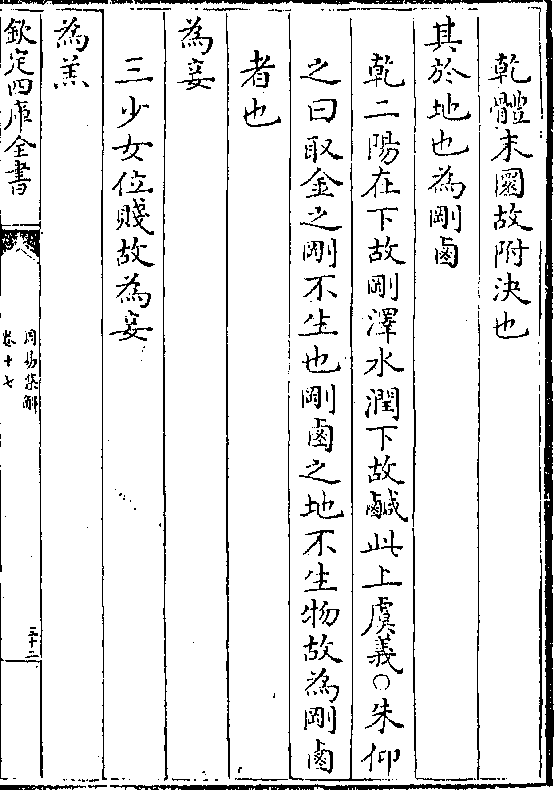 乾體未圜故附決也
其於地也為剛鹵
乾二陽在下故剛澤水潤下故鹹此上虞義○朱仰
之曰取金之剛不生也剛鹵之地不生物故為剛鹵
者也
為妾
三少女位賤故為妾
為羔
欽定四庫全書
周易集解
卷十七
三十二